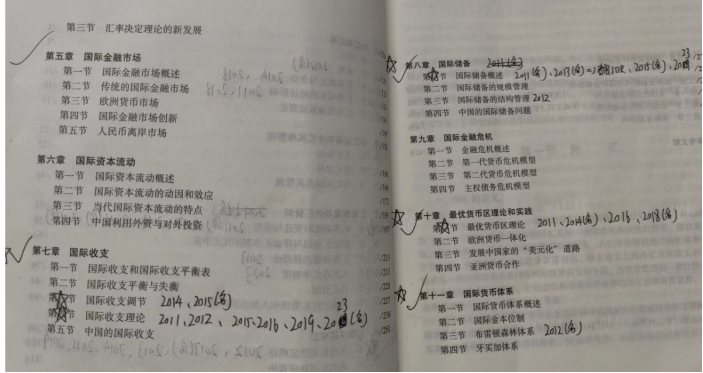 第三节 汇率决定理论的新发展
第五章 国际金融市场
第一节 国际金融市场概述
第二节 传统的国际金融市场
第三节 欧洲货币市场
第四节 国际金融市场创新
第五节 人民币离岸市场
第六章 国际资本流动
第一节 国际资本流动概述
第二节 国际资本流动的动因和效应
第三节 当代国际资本流动的特点
第四节 中国利用外资与对外投资
第七章 国际收支
第一节 国际收支和国际收支平衡表 /221
第二节 国际收支平衡与失衡
国际收支调节 2014、2015(名) /227
国际收支理论 2011、2012、2015、2016、2019、2023(名)
第五节 中国的国际收支 /251
第八章 国际储备
国际储备概述 2011(名)、2013(名)⇒SDR、2015(名)、2023
第二节 国际储备的规模管理
第三节 国际储备的结构管理 2012
第四节 中国的国际储备问题
第九章 国际金融危机
第一节 金融危机概述
第二节 第一代货币危机模型
第三节 第二代货币危机模型
第四节 主权债务危机模型
第十章 最优货币区理论和实践
最优货币区理论 2011、2014(名)、2016、2018(名)
第二节 欧洲货币一体化
第三节 发展中国家的“美元化”道路
第四节 亚洲货币合作
第十一章 国际货币体系
第一节 国际货币体系概述
第二节 国际金本位制
第三节 布雷顿森林体系 2012(名)
第四节 牙买加体系